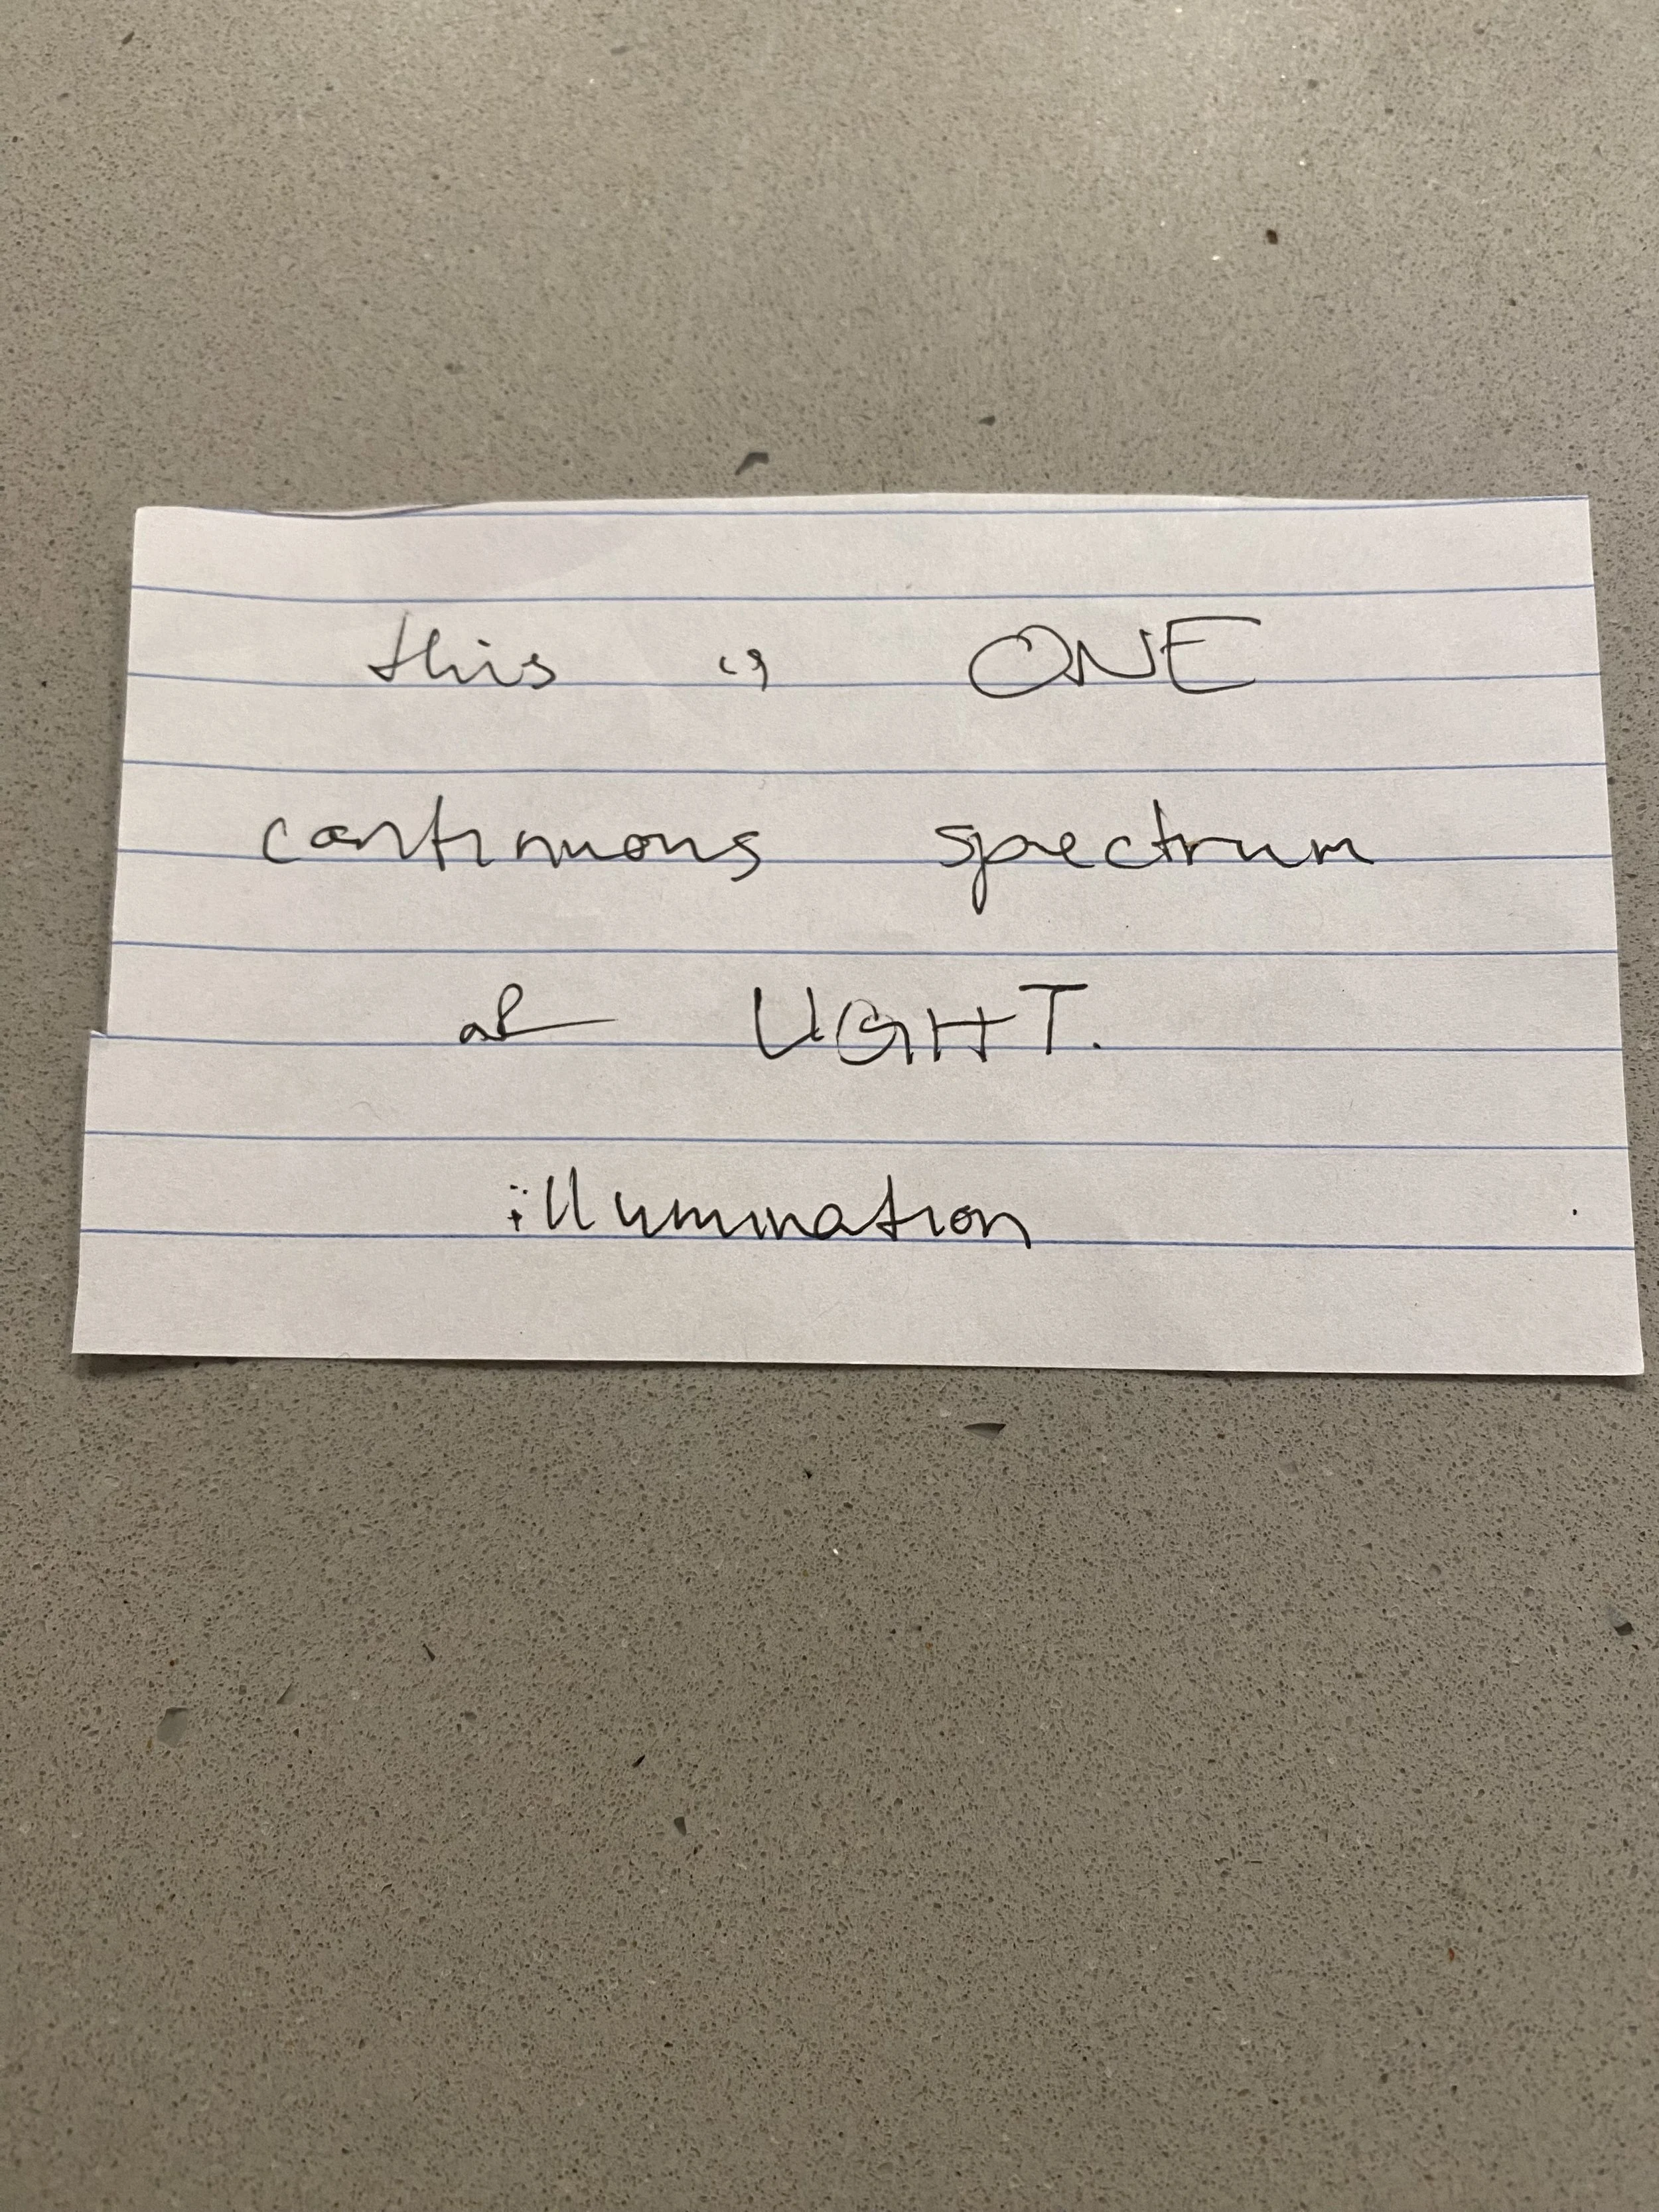 this is ONE
continuous spectrum
of LIGHT.
illumination